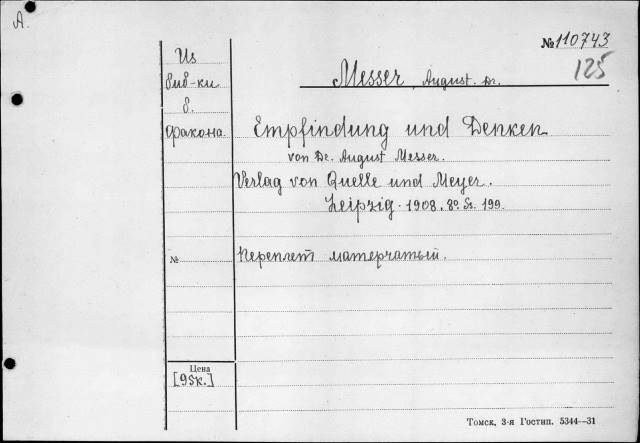 А.
№ 110743
125
Из
биб-ки
б.
Факона.
Messer, August Dr.
Empfindung und Denken
von Dr. August Messer.
Verlag von Quelle und Meyer.
Leipzig. 1908. 8º. S. 199.
№
Переплет матерчатый.
Цена
[95к.]
Томск, 3-я Гостип. 5344—31